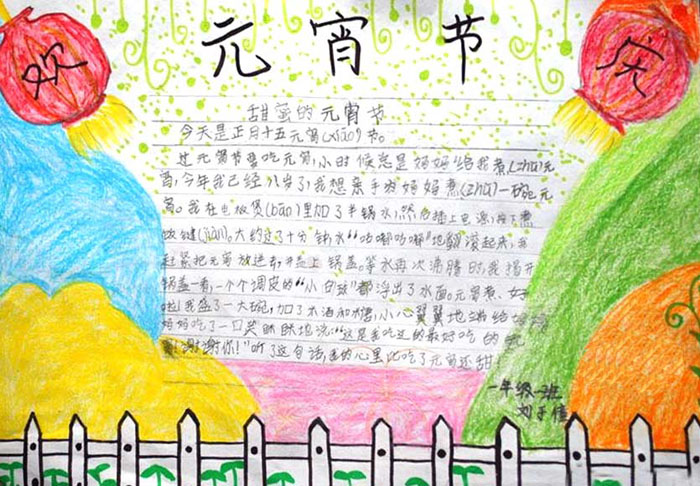 欢 元宵节 庆
甜蜜的元宵节
今天是正月十五元宵(xiāo)节。
过元宵节要吃元宵,小时候总是妈妈给我煮(zhǔ)元
宵,今年我已经八岁了,我想亲手为妈妈煮(zhǔ)一碗元
宵。我在电饭煲(bāo)里加了半锅水,然后插上电源,按下煮
饭键(jiàn)。大约过了十分钟,水“咕嘟咕嘟”地翻滚起来,我
赶紧把元宵放进去,并盖上锅盖。等水再次沸腾时,我揭开
锅盖一看,一个个调皮的“小白球”都浮出了水面。元宵煮好
啦!我盛了一大碗,加了木酒和糖,小心翼翼地端给妈妈
妈妈吃了一口笑眯眯地说:“这是我吃过的最好吃的元
宵!谢谢你!”听了这句话,我的心里比吃了元宵还甜!
一年级一班
刘子